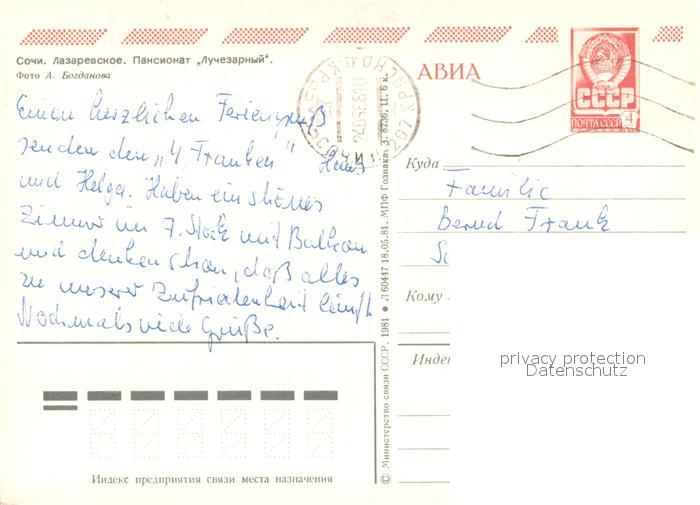 Сочи. Лазаревское. Пансионат „Лучезарный“.
Фото А. Богданова
Einen herzlichen Feriengruß
senden den „4 Franken“ Hans
und Helga. Haben ein schönes
Zimmer im 7. Stock mit Balkon
und denken schon, daß alles
zu unserer Zufriedenheit läuft.
Nochmals viele Grüße.
АВИА
СССР
ПОЧТА СССР 4
Куда
Familie
Bernd Frank
Кому
Индек
privacy protection
Datenschutz
Индекс предприятия связи места назначения
© Министерство связи СССР. 1981 ● Л 60447 18.05.81. МПФ Гознака. З. 8236. Ц. 6 к.